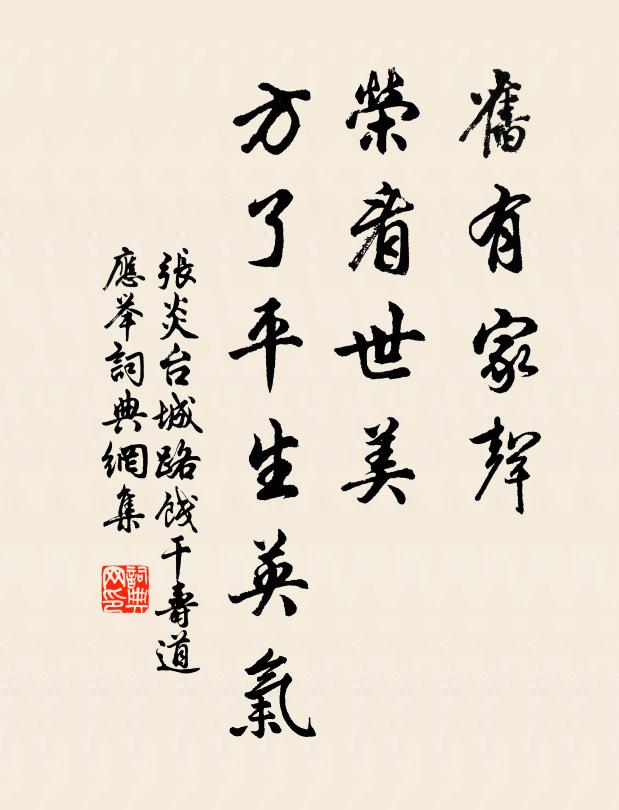 舊有家聲
榮看世美
方了平生英氣
張炎台城路餞干壽道
應举詞典網集
詞典
网印